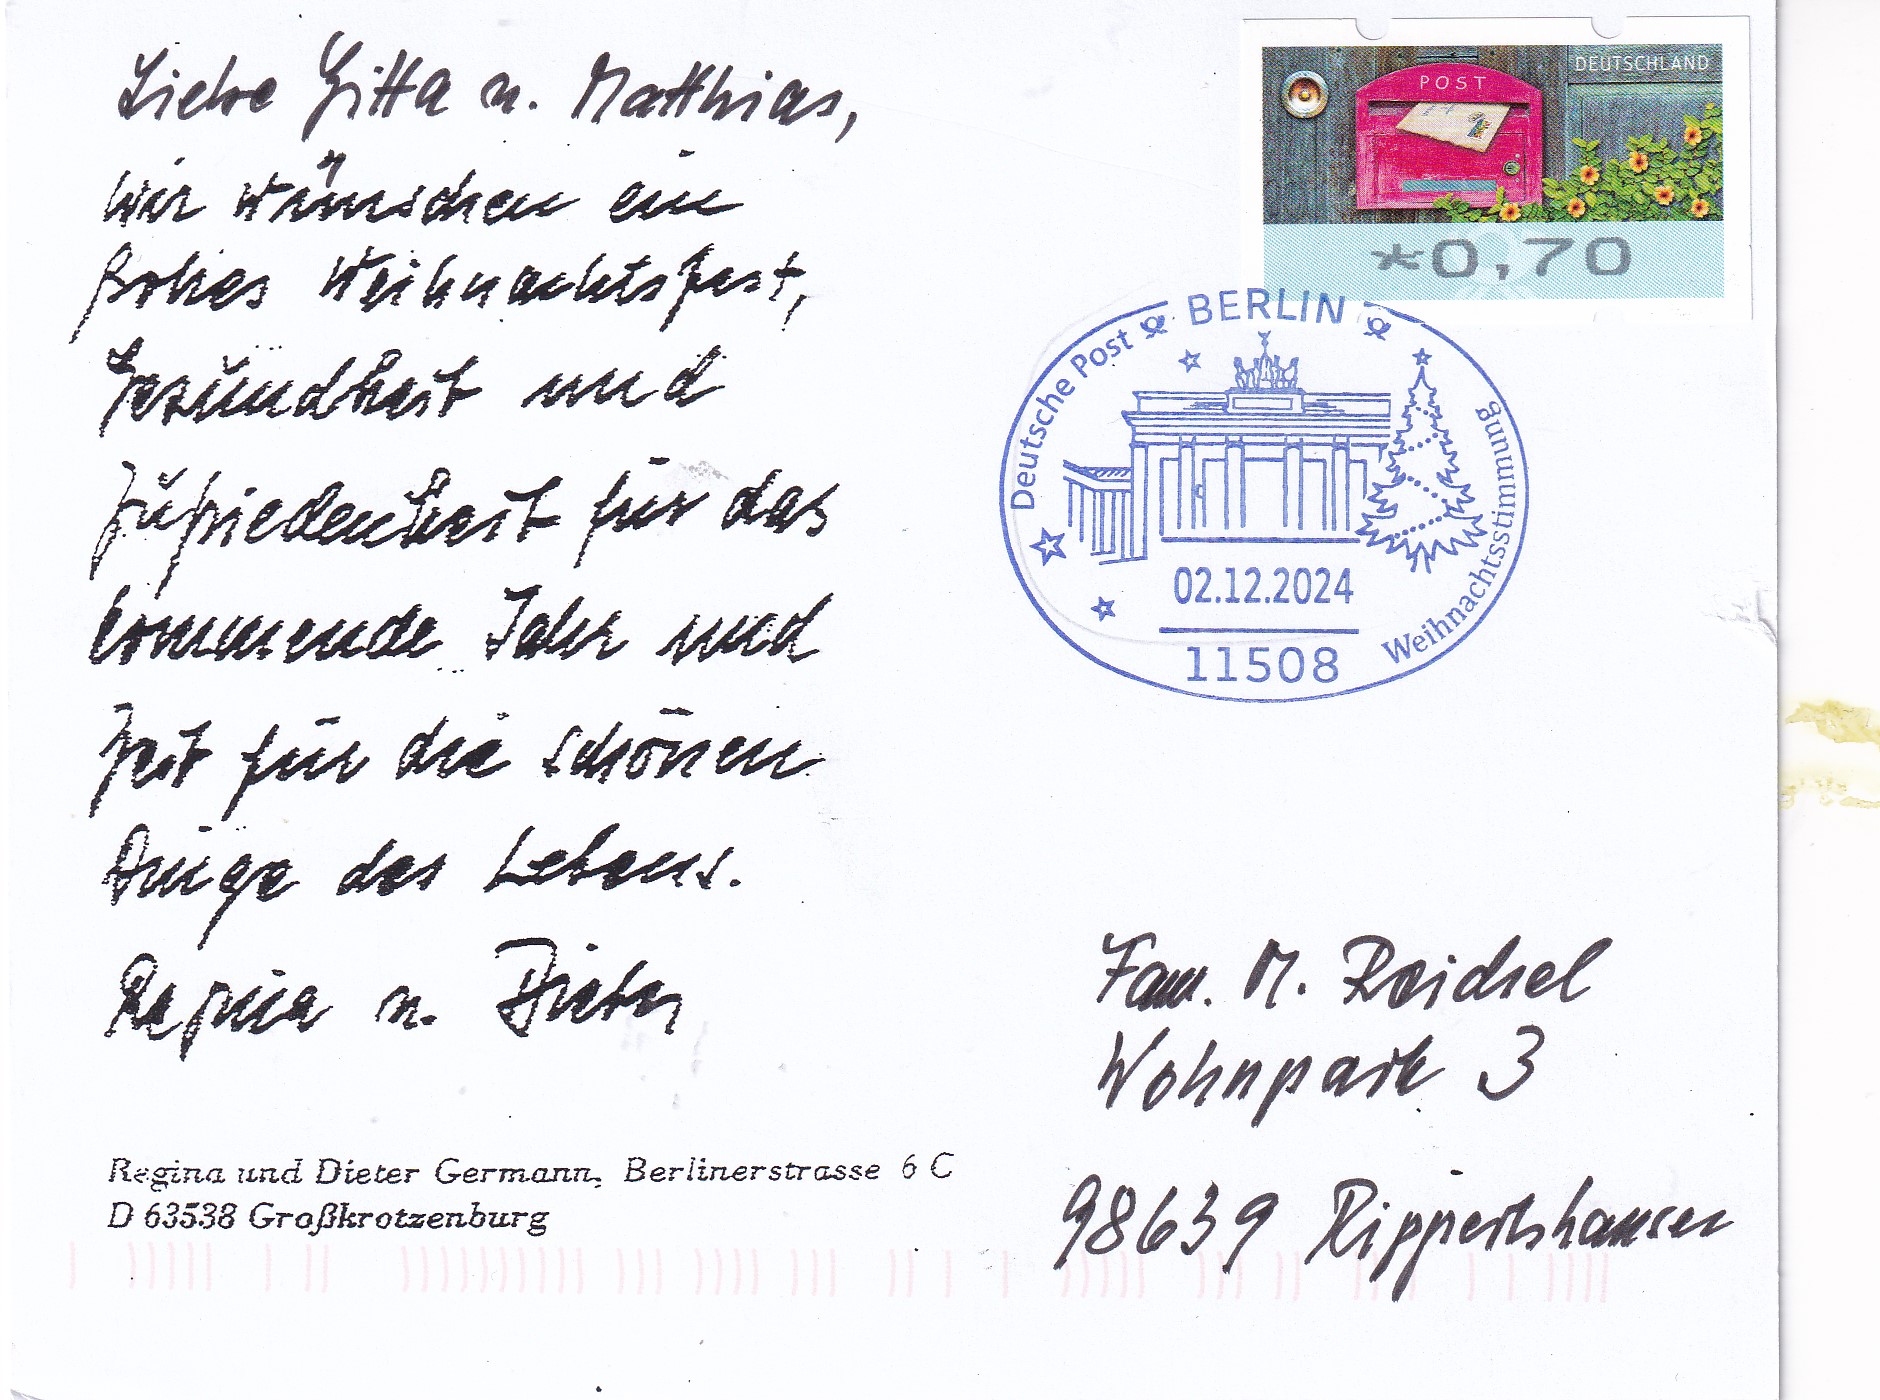 Liebe Gitta u. Matthias,
wir wünschen ein
frohes Weihnachtsfest,
Gesundheit und
Zufriedenheit für das
kommende Jahr und
Zeit für die schönen
Dinge des Lebens.
Regina u. Dieter
Regina und Dieter Germann, Berlinerstrasse 6 C
D 63538 Großkrotzenburg
DEUTSCHLAND
POST
*0,70
Deutsche Post BERLIN
Weihnachtsstimmung
02.12.2024
11508
Fam. M. Reichel
Wohnpark 3
98639 Rippershausen